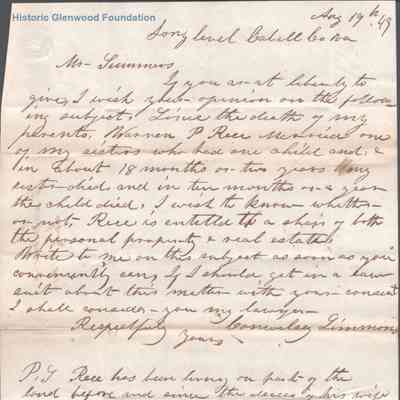 Historic Glenwood Foundation
Aug 19th 49
Long level Cabell Co Va
Mr Summers
If you are at liberty to
give, I wish your opinion on the follow
ing subject, Since the death of my
parents, Warren P Rece Married one
of my sisters who had one child and
in about 18 months or two years My
sister died and in ten months or a year
the child died, I wish to know whether
or not, Rece is entitled to a share of both
the personal property & real estate
Write to me on this subject as soon as you
conveniently can, If I should get in a law
suit about this matter with your consent
I shall consider you my lawyer
Respectfully Conwelsey Simmons
Yours
P.S Rece has been living on part of the
land before and since the decease of his wife